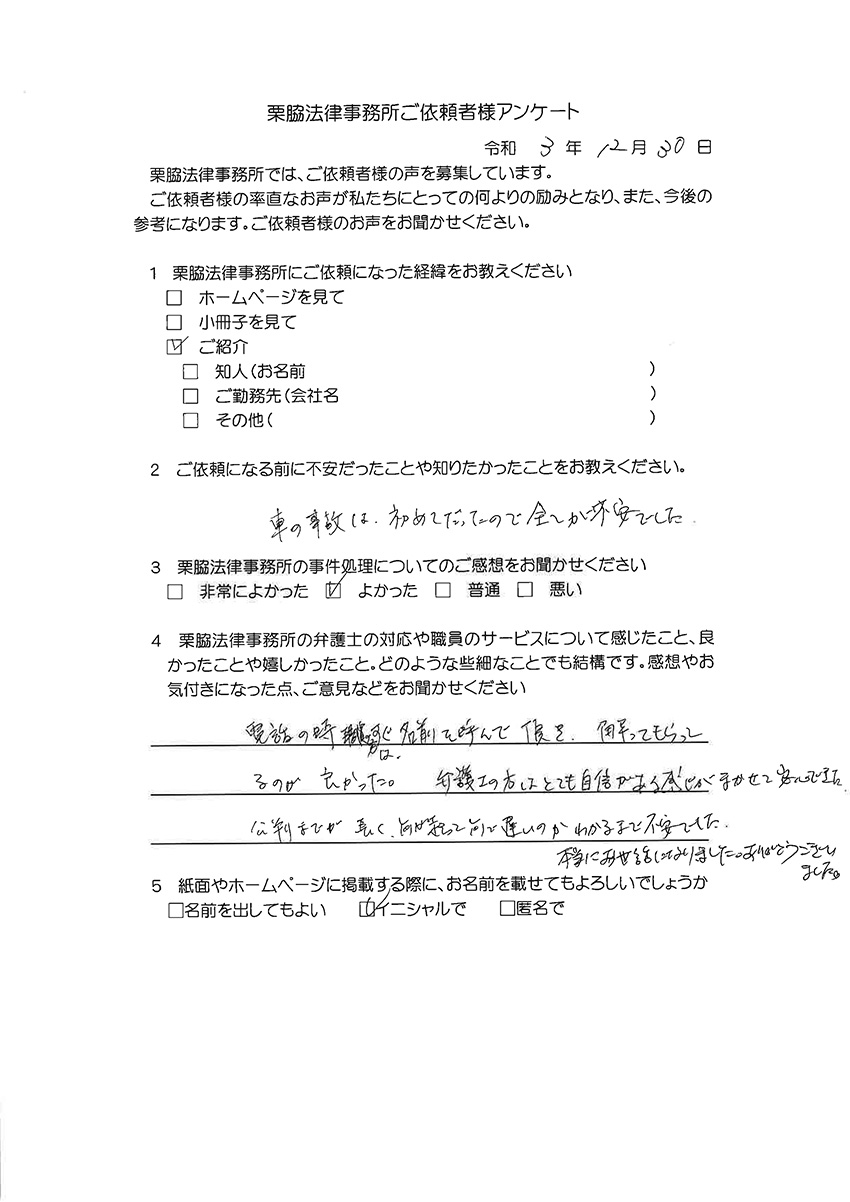 栗脇法律事務所ご依頼者様アンケート
令和 3 年 12月 30 日
栗脇法律事務所では、ご依頼者様の声を募集しています。
ご依頼者様の率直なお声が私たちにとっての何よりの励みとなり、また、今後の
参考になります。ご依頼者様のお声をお聞かせください。
1 栗脇法律事務所にご依頼になった経緯をお教えください
□ ホームページを見て
□ 小冊子を見て
☑ ご紹介
□ 知人(お名前 )
□ ご勤務先(会社名 )
□ その他( )
2 ご依頼になる前に不安だったことや知りたかったことをお教えください。
車の事故は、初めてだったので全てが不安でした。
3 栗脇法律事務所の事件処理についてのご感想をお聞かせください
□ 非常によかった ☑ よかった □ 普通 □ 悪い
4 栗脇法律事務所の弁護士の対応や職員のサービスについて感じたこと、良
かったことや嬉しかったこと。どのような些細なことでも結構です。感想やお
気付きになった点、ご意見などをお聞かせください
電話の時 すぐ名前を呼んで
は、
るのが 良かった。 弁護士の方はとても自信がある感じがしまかせて安心できた
公判までが長く、何が起って何で遅いのかわかるまで不安でした。
本当にお世話になりました。ありがとうござい
ました。
5 紙面やホームページに掲載する際に、お名前を載せてもよろしいでしょうか
□名前を出してもよい ☑イニシャルで □匿名で